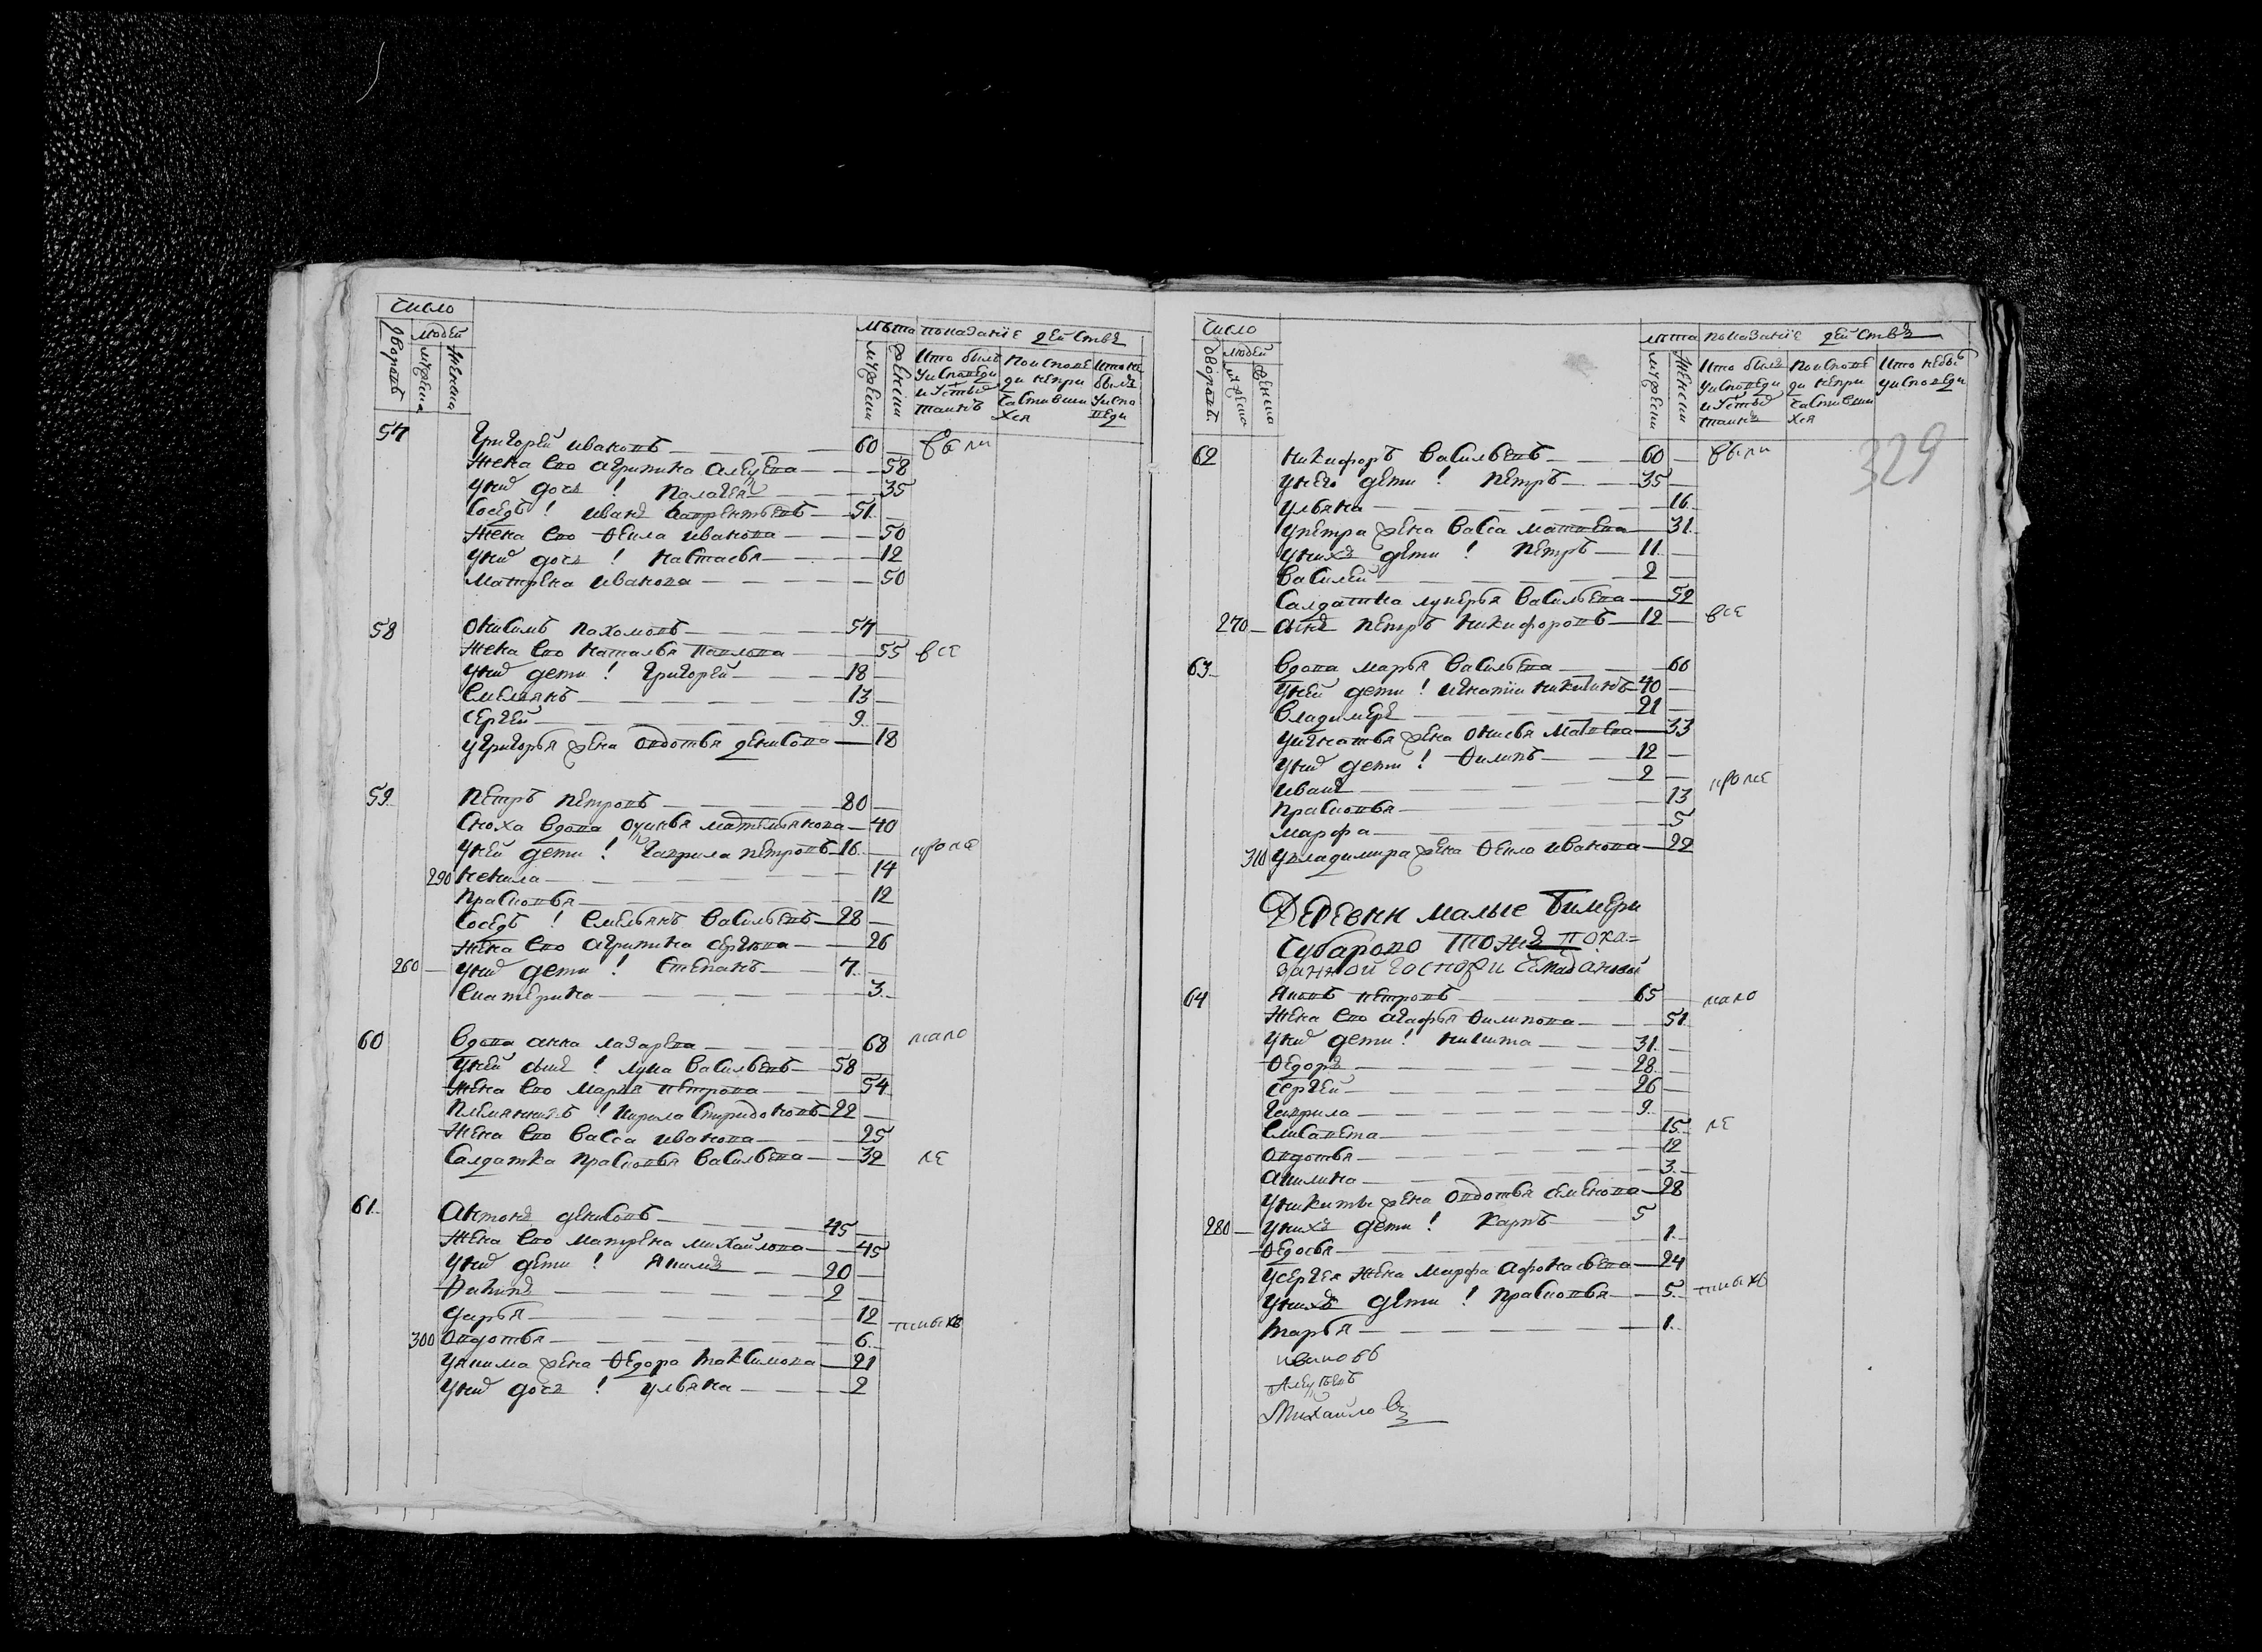 число
людей
дворовъ
мужеска
женска
лѣта
показанїе действъ
мужески
женски
кто былъ у исповеди и у стыхъ таинъ
по исповеди не причастившихся
кто не былъ у исповеди
57 Григорей Ивановъ 60 были
жена ево агрипина алеѯева 58
у нихъ дочь ! палагея 35
соседъ ! иванъ лаврентьевъ 51
жена ево Ѳекла иванова 50
у нихъ дочь ! настасья 12
матрена иванова 50
58 онисимъ пахомовъ 57
жена ево наталья павлова 55 все
у нихъ дети ! григорей 18
емельянъ 13
сергей 9
у григорья жена овдотья денисова 18
59 петръ петровъ 80
сноха вдова 40
у ней дети ! гаврила петровъ 16 кроме
290 ненила 14
прасковья 12
соседъ ! емельянъ васильевъ 28
жена ево агрипина сергѣева 26
260 у нихъ дети ! степанъ 7
екатерина 3
60 вдова анна лазарева 68 мало
у ней сынъ ! лука васильевъ 58
жена ево марья петрова 54
племянникъ ! кирила спиридоновъ 22
жена ево васса иванова 25
салдатка прасковья васильева 32 ле
61 антонъ денисовъ 45
жена ево матрена михайлова 45
у нихъ дети ! якимъ 20
Ѳилипъ 2
дарья 12 тныхъ
300 овдотья 6
у якима жена Ѳедора максимова 21
у нихъ дочь ! ульяна 2
число
людей
дворовъ
мужеска
женска
лѣта
показанїе действъ
мужески
женски
кто былъ у исповеди и у стыхъ таинъ
по исповеди не причастившихся
кто не былъ у исповеди
329
62 никифоръ васильевъ 60 были
у него дети ! петръ 35
ульяна 16
у петра жена васса матвеева 31
у нихъ дети ! петръ 11
василей 2
салдатка лукерья васильева 52
270 сынъ петръ никифоровъ 12 все
63 вдова марья васильева 66
у ней дети ! игнатїи никитинъ 40
владимеръ 21
у игнатья жена онисья матвеева 33
у нихъ дети ! Ѳилипъ 12
иванъ 2 кроме
прасковья 13
марфа 5
310 у владимира жена Ѳекла иванова 22
деревни малые бимери
субарово тожъ пока=
занной госпожи
64 яковъ петровъ 65 мало
жена ево агафья Ѳилипова 51
у нихъ дети ! никита 31
Ѳедоръ 28
сергей 26
гаврила 9
елисавета 15 ле
овдотья 12
акилина 3
у никиты жена овдотья семенова 28
280 у нихъ дети ! карпъ 5
Ѳедосья 1
у сергея жена марфа афонасьева 24
у нихъ дети ! прасковья 5 тныхъ
марья 1
ивановъ
алеѯѣевъ
михайловъ